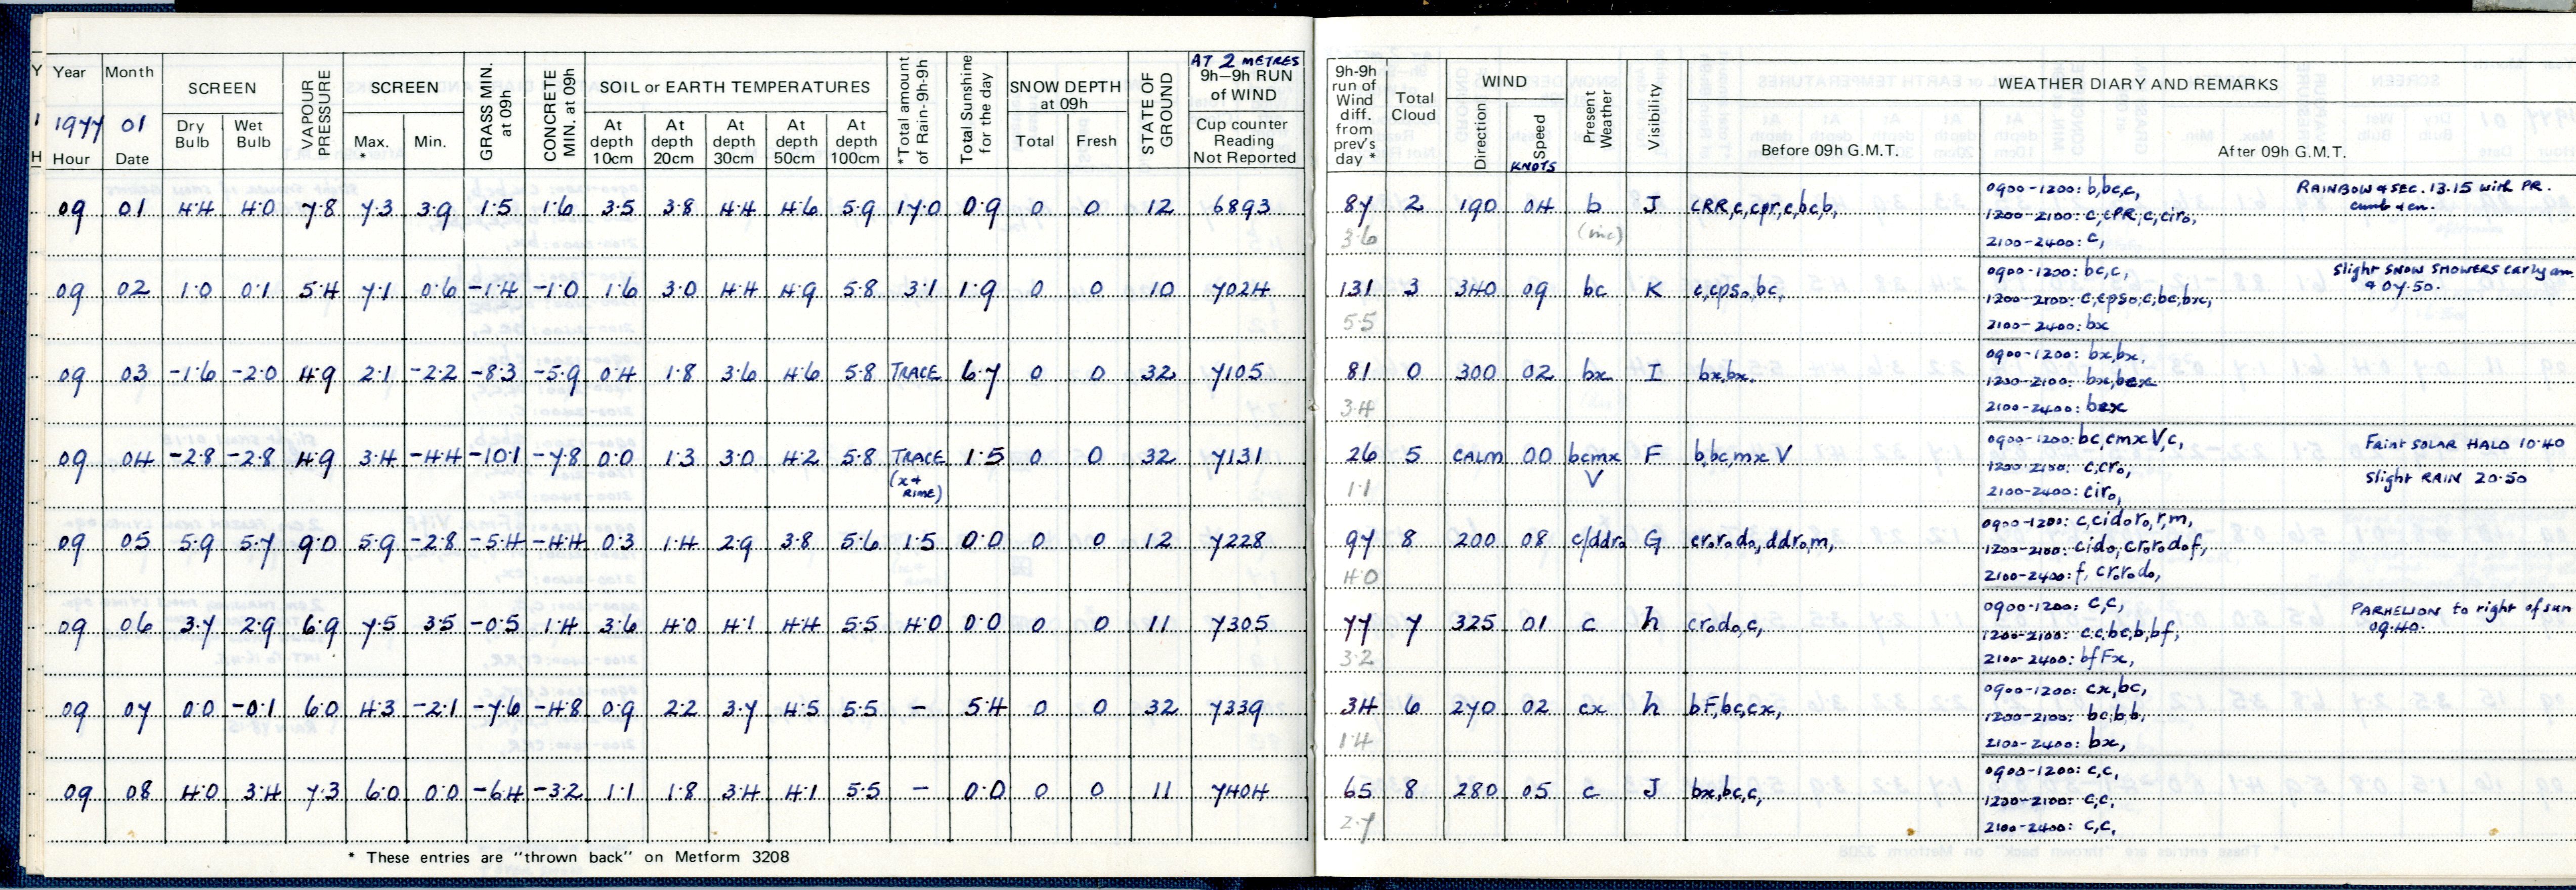 Y Year Month SCREEN VAPOUR PRESSURE SCREEN GRASS MIN. at 09h CONCRETE MIN. at 09h SOIL or EARTH TEMPERATURES *Total amount of Rain-9h-9h Total Sunshine for the day SNOW DEPTH at 09h STATE OF GROUND AT 2 METRES 9h–9h RUN of WIND
1 1977 01 Dry Bulb Wet Bulb Max. * Min. At depth 10cm At depth 20cm At depth 30cm At depth 50cm At depth 100cm Total Fresh Cup counter Reading Not Reported
H Hour Date
09 01 4.4 4.0 7.8 7.3 3.9 1.5 1.6 3.5 3.8 4.4 4.6 5.9 17.0 0.9 0 0 12 6893
09 02 1.0 0.1 5.4 7.1 0.6 -1.4 -1.0 1.6 3.0 4.4 4.9 5.8 3.1 1.9 0 0 10 7024
09 03 -1.6 -2.0 4.9 2.1 -2.2 -8.3 -5.9 0.4 1.8 3.6 4.6 5.8 TRACE 6.7 0 0 32 7105
09 04 -2.8 -2.8 4.9 3.4 -4.4 -10.1 -7.8 0.0 1.3 3.0 4.2 5.8 TRACE 1.5 0 0 32 7131
(x + RIME)
09 05 5.9 5.7 9.0 5.9 -2.8 -5.4 -4.4 0.3 1.4 2.9 3.8 5.6 1.5 0.0 0 0 12 7228
09 06 3.7 2.9 6.9 7.5 3.5 -0.5 1.4 3.6 4.0 4.1 4.4 5.5 4.0 0.0 0 0 11 7305
09 07 0.0 -0.1 6.0 4.3 -2.1 -7.6 -4.8 0.9 2.2 3.7 4.5 5.5 - 5.4 0 0 32 7339
09 08 4.0 3.4 7.3 6.0 0.0 -6.4 -3.2 1.1 1.8 3.4 4.1 5.5 - 0.0 0 0 11 7404
* These entries are "thrown back" on Metform 3208
9h-9h run of Wind diff. from prev's day * Total Cloud WIND Present Weather Visibility WEATHER DIARY AND REMARKS
Direction Speed KNOTS Before 09h G.M.T. After 09h G.M.T.
0900-1200: b,bc,c, RAINBOW + SEC. 13.15 with PR.
87 2 190 04 b J cRR,c,cpr,c,bc,b, 1200-2100: c,cPR,c,ciro,
3.6 2100-2400: c,
0900-1200: bc,c, Slight SNOW SHOWERS early am
131 3 340 09 bc K c,cpso,bc, 1200-2100: c,cpso,c,bc,bx, & 07.50.
5.5 2100-2400: bx
0900-1200: bx,bx,
81 0 300 02 bx I bx,bx. 1200-2100: bx,bcx
3.4 2100-2400: bcx
0900-1200: bc,cmx V,c, Faint SOLAR HALO 10.40
26 5 CALM 00 bcmx V F b,bc,mx V 1200-2100: c,cro, Slight RAIN 20.50
1.1 2100-2400: ciro,
0900-1200: c,cidoro,r,m,
97 8 200 08 c/ddro G crorodo,ddrom, 1200-2100: cido,crorodof,
4.0 2100-2400: f, crorodo,
0900-1200: c,c, PARHELION to right of sun
77 7 325 01 c h crodo,c, 1200-2100: c,c,bc,b,bf, 09.40.
3.2 2100-2400: bfFx,
0900-1200: cx,bc,
34 6 270 02 cx h bF,bc,cx, 1200-2100: bc,b,b,
1.4 2100-2400: bx,
0900-1200: c,c,
65 8 280 05 c J bx,bc,c, 1200-2100: c,c,
2.7 2100-2400: c,c,